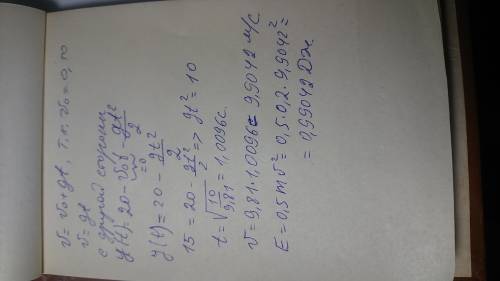 v = v₀ + gt, т.к. v₀ = 0, то
v = gt
с другой стороны
y(t) = 20 - v₀t - gt²/2
=0
y(t) = 20 - gt²/2
15 = 20 - gt²/2 => gt² = 10
t = √(10/9,81) = 1,0096 c.
v = 9,81 · 1,0096 = 9,9042 м/с.
E = 0,5 mv² = 0,5 · 0,2 · 9,9042² =
= 0,99042 Дж